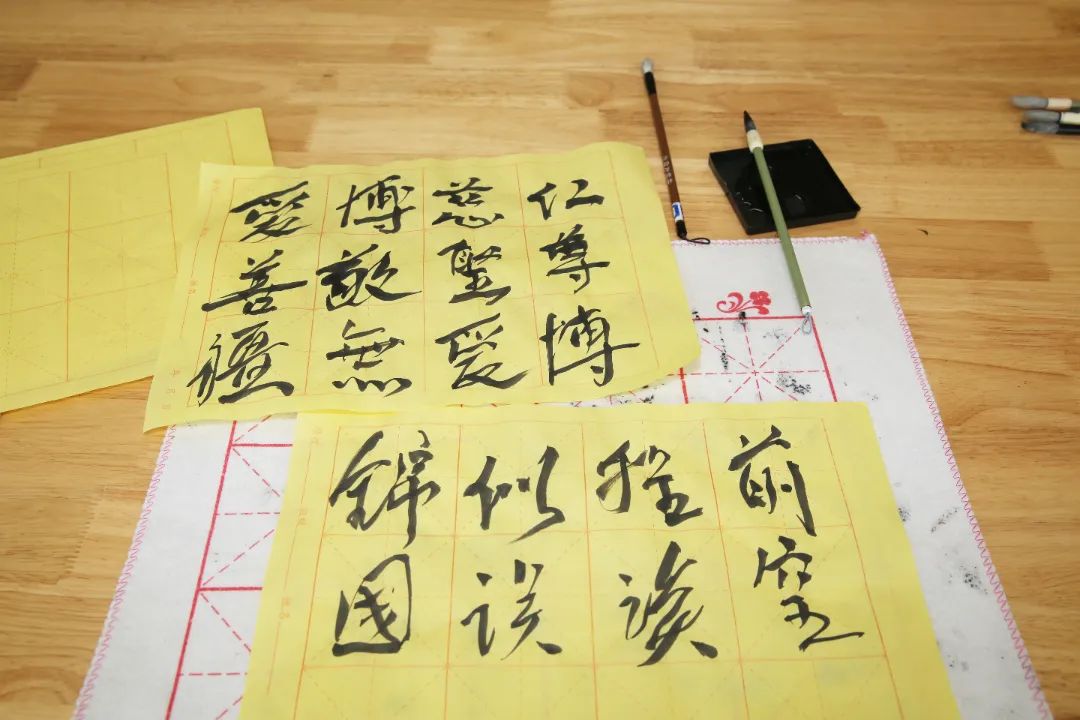 仁慈博愛
尊聖敬善
博愛無疆
前程似錦
空談誤國